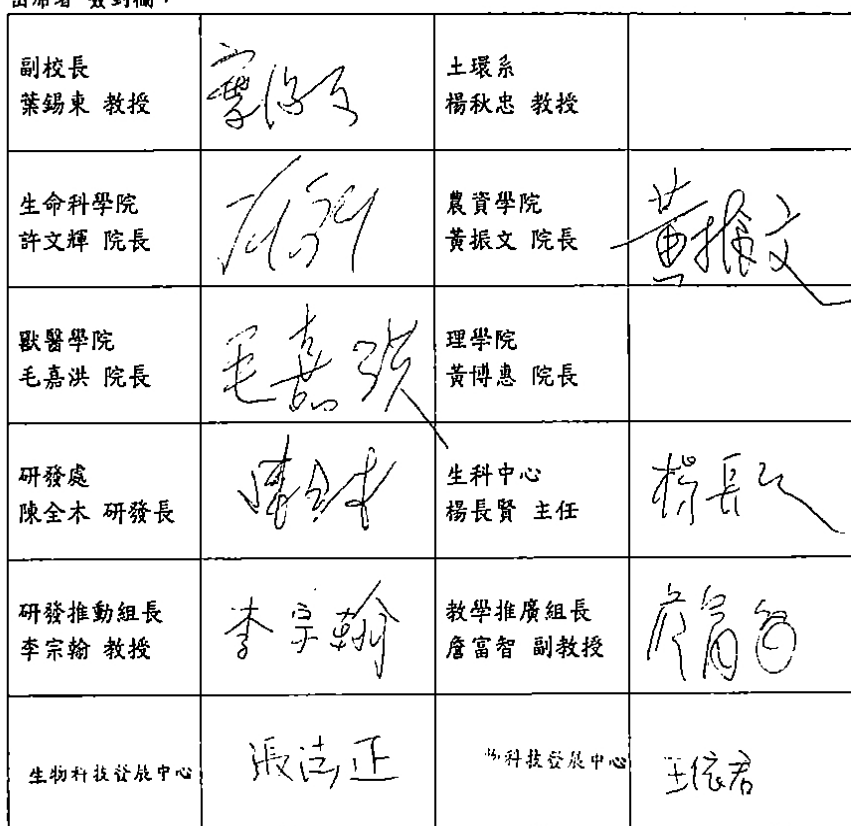 出席者 簽到欄：
副校長
葉錫東 教授
土環系
楊秋忠 教授
生命科學院
許文輝 院長
農資學院
黃振文 院長
黃振文
獸醫學院
毛嘉洪 院長
毛嘉洪
理學院
黃博惠 院長
研發處
陳全木 研發長
陳全木
生科中心
楊長賢 主任
楊長賢
研發推動組長
李宗翰 教授
李宗翰
教學推廣組長
詹富智 副教授
詹富智
生物科技發展中心
張浩正
物科技發展中心
王依君